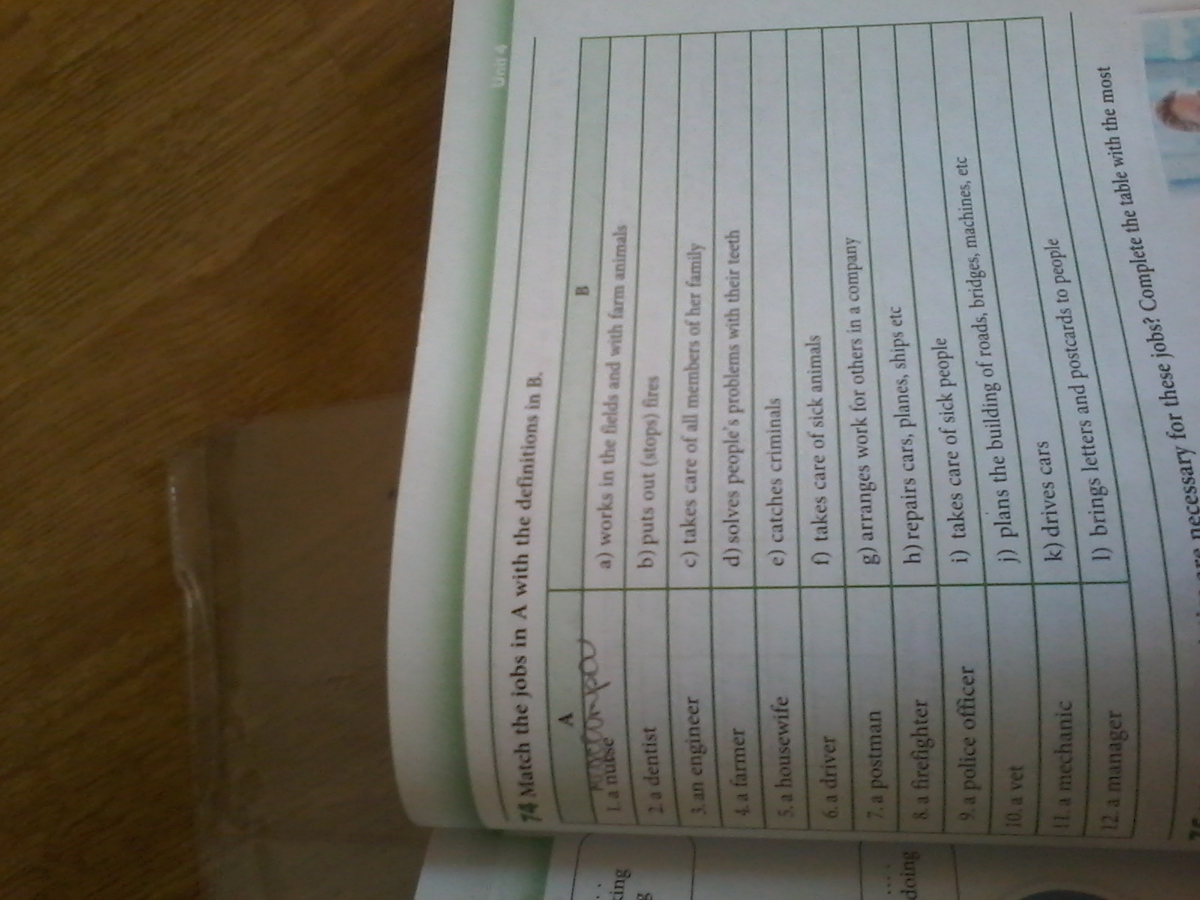 Unit 4
74 Match the jobs in A with the definitions in B.
A B
1. a nurse a) works in the fields and with farm animals
2. a dentist b) puts out (stops) fires
3. an engineer c) takes care of all members of her family
4. a farmer d) solves people's problems with their teeth
5. a housewife e) catches criminals
6. a driver f) takes care of sick animals
7. a postman g) arranges work for others in a company
8. a firefighter h) repairs cars, planes, ships etc
9. a police officer i) takes care of sick people
10. a vet j) plans the building of roads, bridges, machines, etc
11. a mechanic k) drives cars
12. a manager l) brings letters and postcards to people
are necessary for these jobs? Complete the table with the most
doing